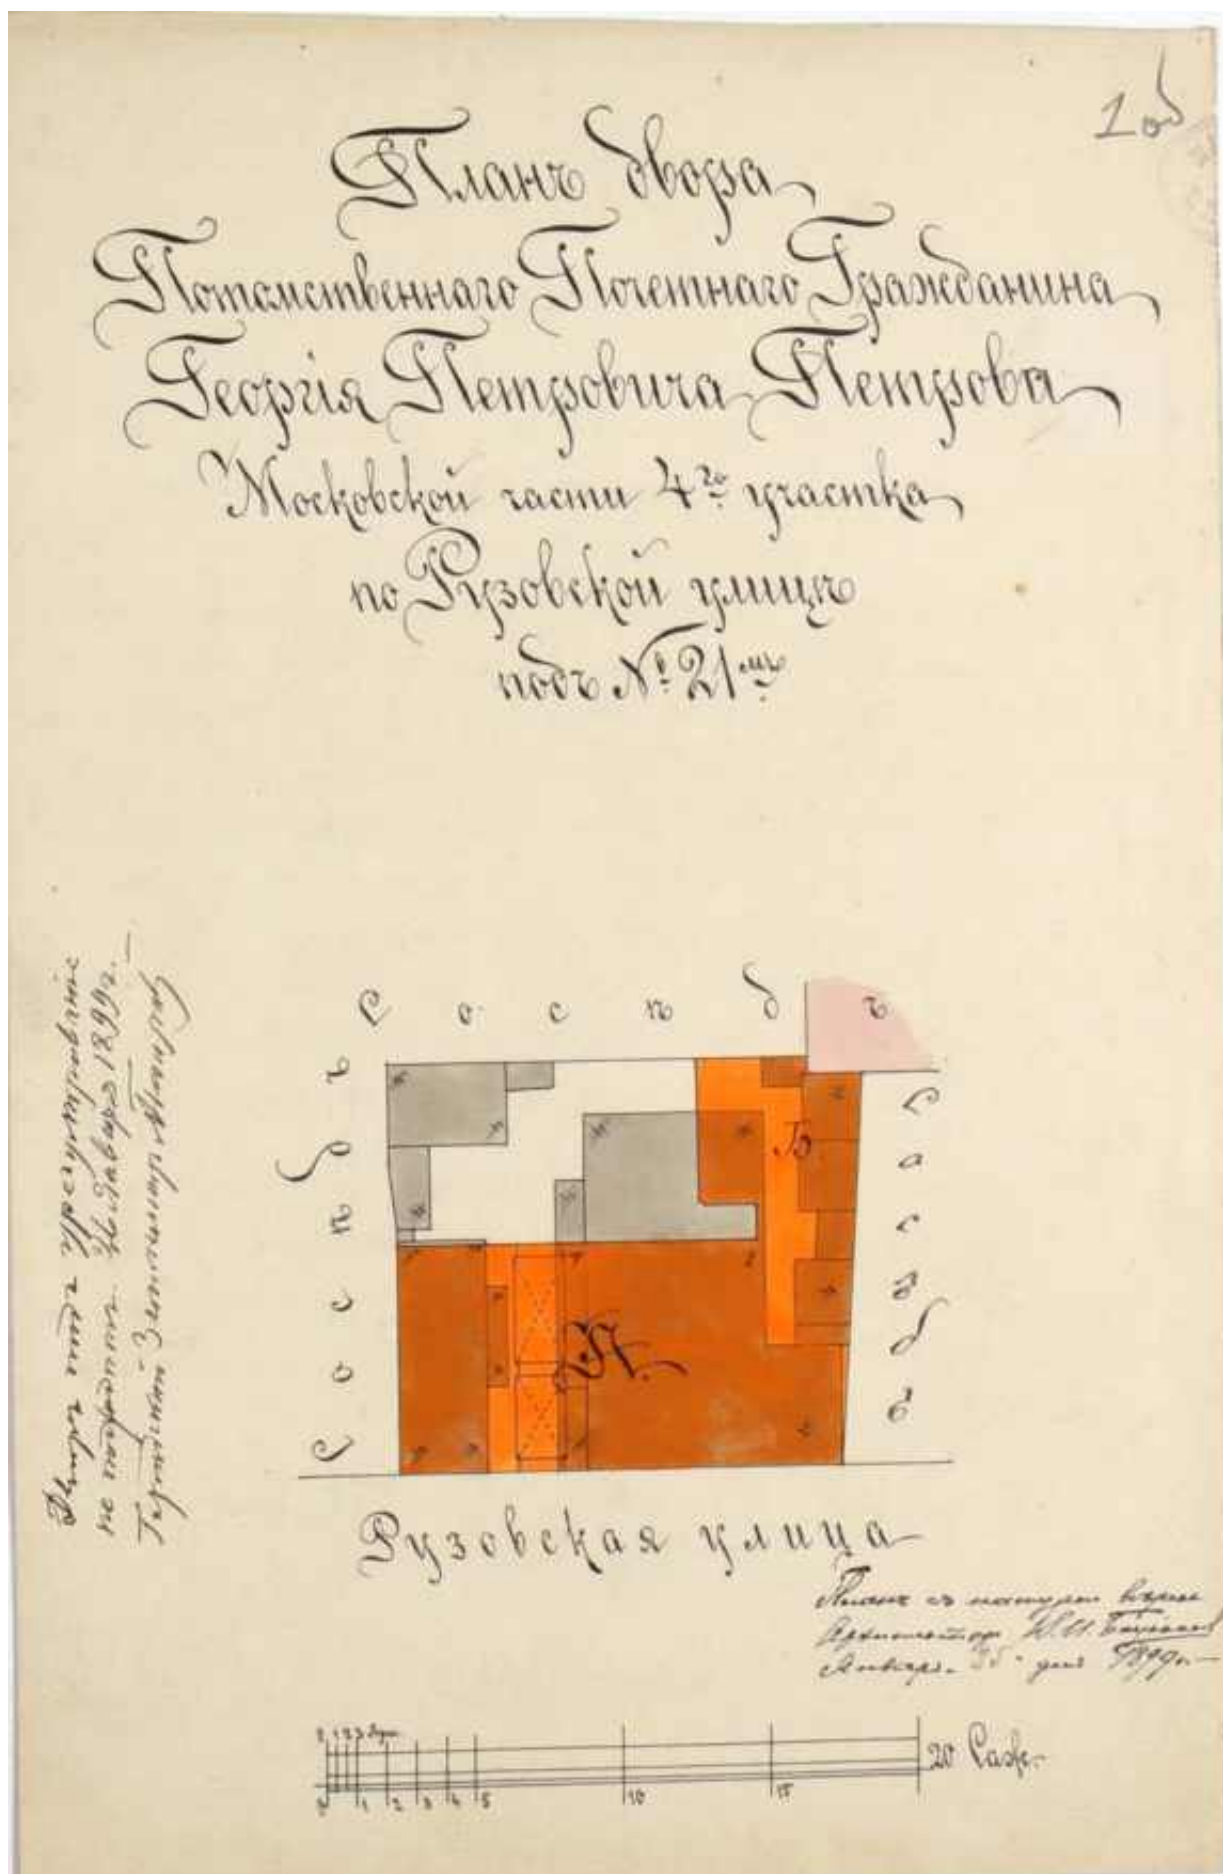 1 об
Планъ двора
Потомственнаго Почетнаго Гражданина
Георгія Петровича Петрова
Московской части 4го участка
по Рузовской улицѣ
подъ № 21мъ
Сосѣдъ
Сосѣдъ
Сосѣдъ
А.
Б.
Рузовская улица
Планъ съ натурою вѣренъ
Архитекторъ
Января 1899 г.
0 1 2 3
0 1 2 3 4 5 10 15 20 Саж.